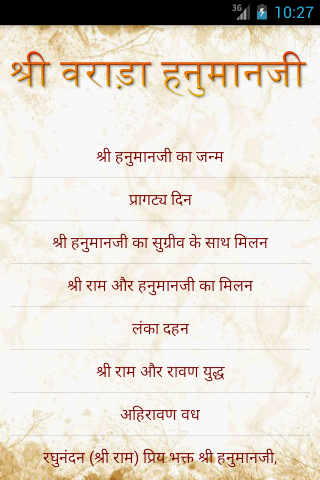 3G 10:27
श्री वराड़ा हनुमानजी
श्री हनुमानजी का जन्म
प्रागट्य दिन
श्री हनुमानजी का सुग्रीव के साथ मिलन
श्री राम और हनुमानजी का मिलन
लंका दहन
श्री राम और रावण युद्ध
अहिरावण वध
रघुनंदन (श्री राम) प्रिय भक्त श्री हनुमानजी,